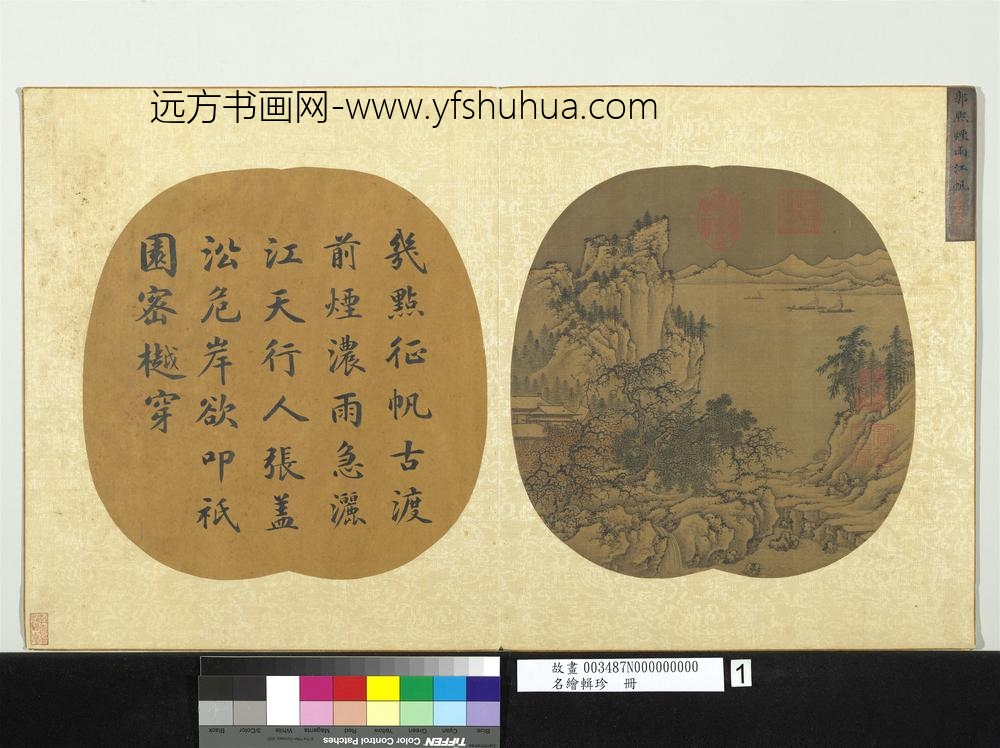 远方书画网-www.yfshuhua.com
郭熙煙雨江帆
幾點征帆古渡
前煙濃雨急灑
江天行人張盖
沿危岸欲叩祇
園密樾穿
故畫 003487N000000000
名繪輯珍 冊
1
Black
3/Color
White
Magenta
Red
Yellow
Green
Cyan
Blue
TIFFEN Color Control Patches